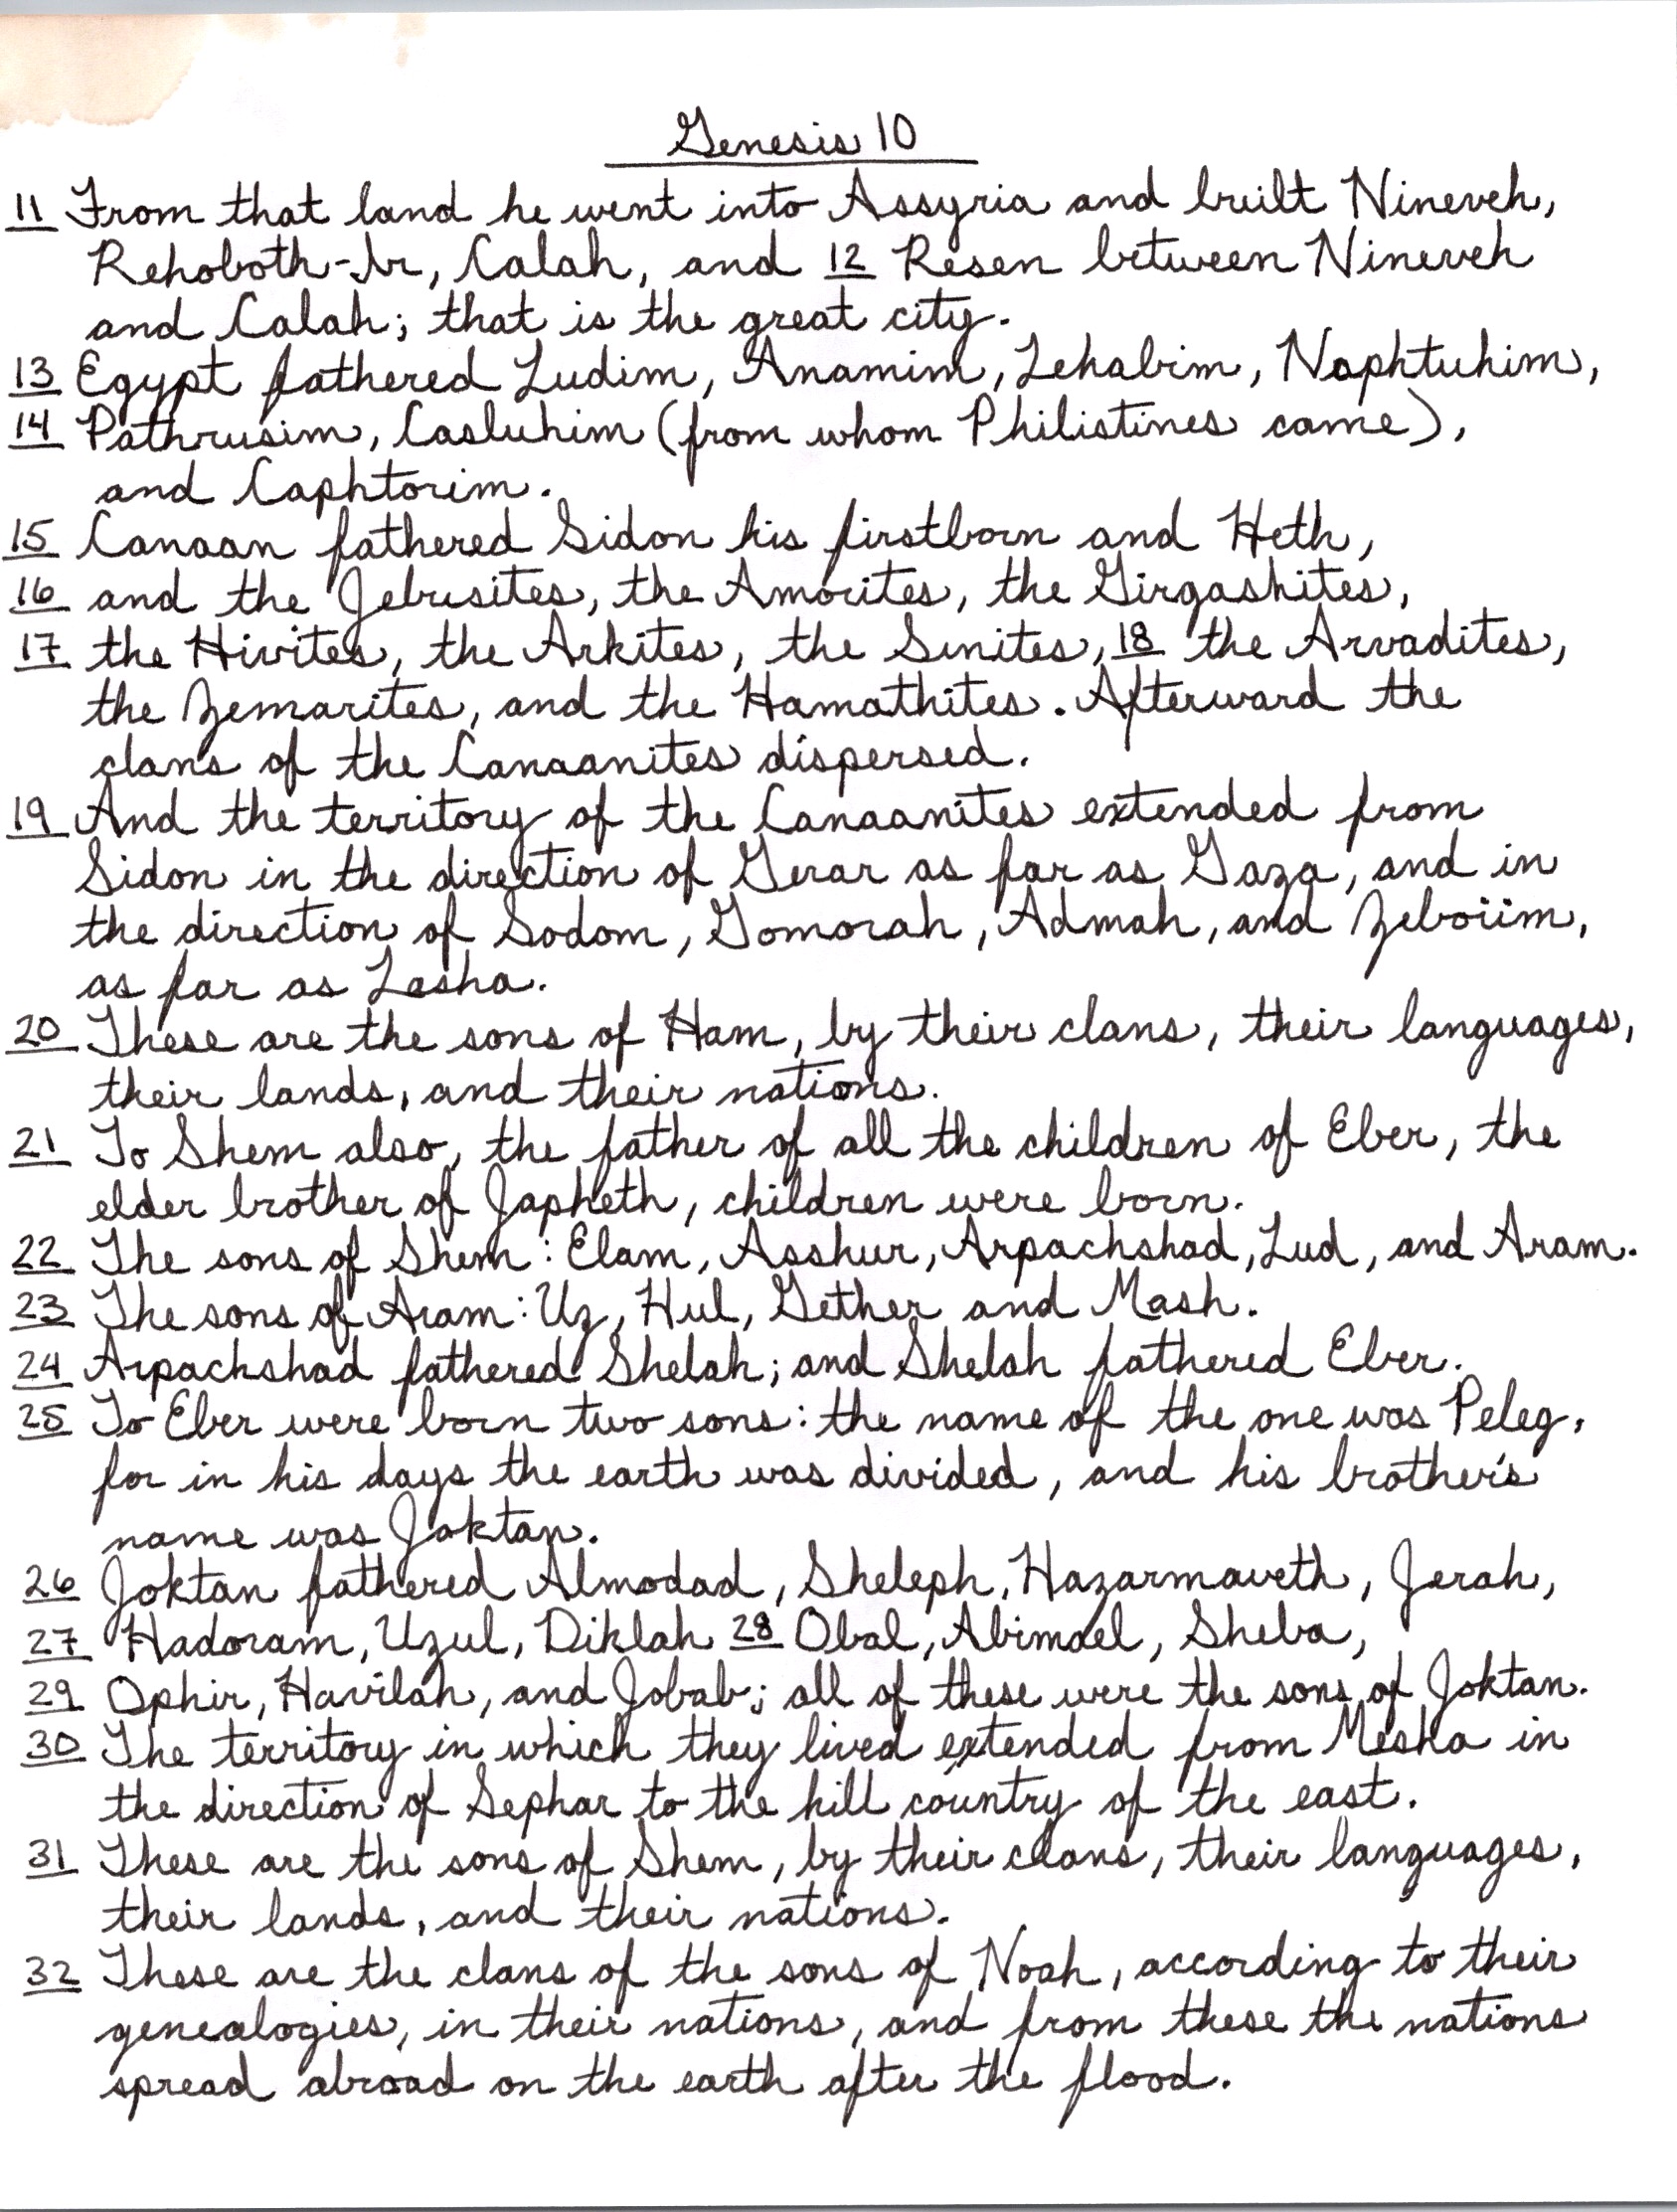 Genesis 10
11 From that land he went into Assyria and built Nineveh,
Rehoboth-Ir, Calah, and 12 Resen between Nineveh
and Calah; that is the great city.
13 Egypt fathered Ludim, Anamim, Lehabim, Naphtuhim,
14 Pathrusim, Casluhim (from whom Philistines came),
and Caphtorim.
15 Canaan fathered Sidon his firstborn and Heth,
16 and the Jebusites, the Amorites, the Girgashites,
17 the Hivites, the Arkites, the Sinites, 18 the Arvadites,
the Zemarites, and the Hamathites. Afterward the
clans of the Canaanites dispersed.
19 And the territory of the Canaanites extended from
Sidon in the direction of Gerar as far as Gaza, and in
the direction of Sodom, Gomorah, Admah, and Zeboiim,
as far as Lasha.
20 These are the sons of Ham, by their clans, their languages,
their lands, and their nations.
21 To Shem also, the father of all the children of Eber, the
elder brother of Japheth, children were born.
22 The sons of Shem: Elam, Asshur, Arpachshad, Lud, and Aram.
23 The sons of Aram: Uz, Hul, Gether and Mash.
24 Arpachshad fathered Shelah; and Shelah fathered Eber.
25 To Eber were born two sons: the name of the one was Peleg,
for in his days the earth was divided, and his brother's
name was Joktan.
26 Joktan fathered Almodad, Sheleph, Hazarmaveth, Jerah,
27 Hadoram, Uzul, Diklah 28 Obal, Abimael, Sheba,
29 Ophir, Havilah, and Jobab; all of these were the sons of Joktan.
30 The territory in which they lived extended from Mesha in
the direction of Sephar to the hill country of the east.
31 These are the sons of Shem, by their clans, their languages,
their lands, and their nations.
32 These are the clans of the sons of Noah, according to their
genealogies, in their nations, and from these the nations
spread abroad on the earth after the flood.